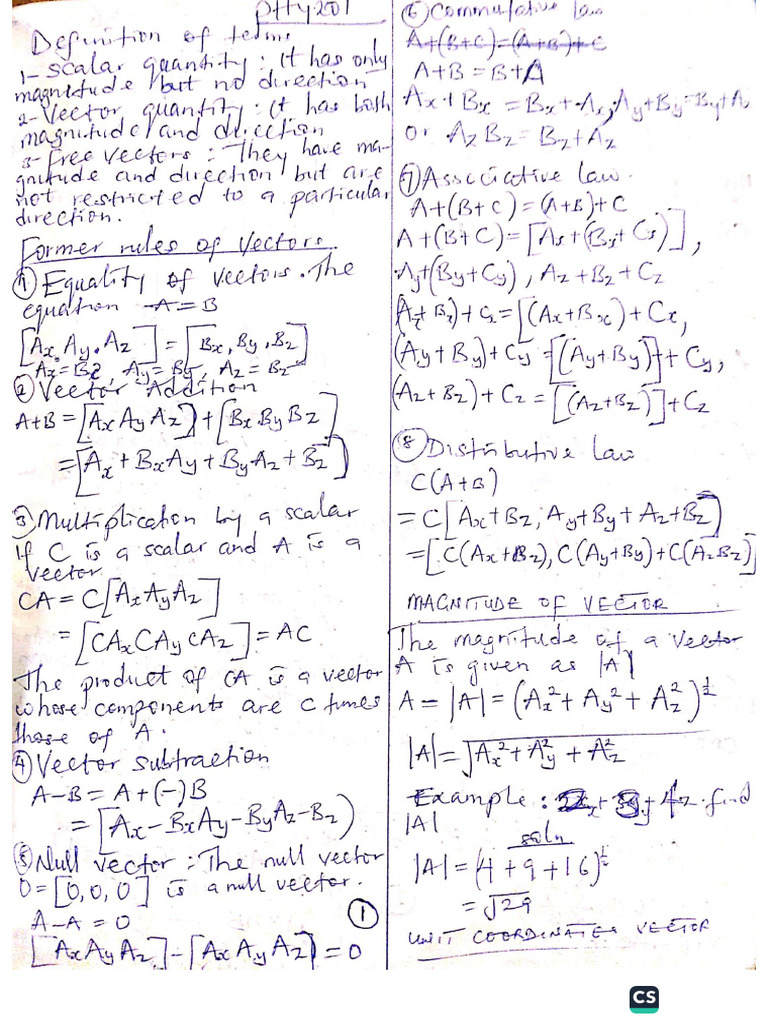 PHY201
Definition of terms
1- Scalar quantity: It has only
magnitude but no direction
2- Vector quantity: It has both
magnitude and direction
3- Free vectors: They have ma-
gnitude and direction but are
not restricted to a particular
direction.
Former rules of Vectors.
① Equality of vectors. The
equation A = B
[Ax, Ay, Az] = [Bx, By, Bz]
Ax = Bz, Ay = By, Az = Bz
② Vector Addition
A+B = [Ax Ay Az] + [Bx By Bz]
= [Ax + Bx Ay + By Az + Bz]
③ Multiplication by a scalar
If C is a scalar and A is a
vector.
CA = C[Ax Ay Az]
= [CAx CAy CAz] = AC
The product of CA is a vector
whose components are C times
those of A.
④ Vector Subtraction
A-B = A + (-)B
= [Ax - Bx Ay - By Az - Bz)
⑤ Null vector: The null vector
0 = [0, 0, 0] is a null vector.
A-A = 0
[Ax Ay Az] - [Ax Ay Az) = 0
①
⑥ Commutative law
A+(B+C)=(A+B)+C
A+B = B+A
Ax+Bx = Bx+Ax, Ay+By=By+A
or Az Bz = Bz+Az
⑦ Associative law.
A+(B+C) = (A+B)+C
A+(B+C) = [As+(Bs+Cs)],
Ay+(By+Cy), Az+Bz+Cz
(A+Bz)+Cx = [(Ax+Bx)+Cx,
(Ay+By)+Cy = [(Ay+By)]+Cy,
(Az+Bz)+Cz = [(Az+Bz)]+Cz
⑧ Distributive law
C(A+B)
= C[Ax+Bz, Ay+By+Az+Bz)
= [C(Ax+Bz), C(Ay+By)+C(Az Bz]
MAGNITUDE OF VECTOR
The magnitude of a vector
A is given as |A|
A = |A| = (Ax²+Ay²+Az²)^½
|A| = √Ax²+Ay²+Az²
Example: 2x+3y+4z find
|A|
soln
|A| = (4+9+16)^½
= √29
UNIT COORDINATES VECTOR
CS